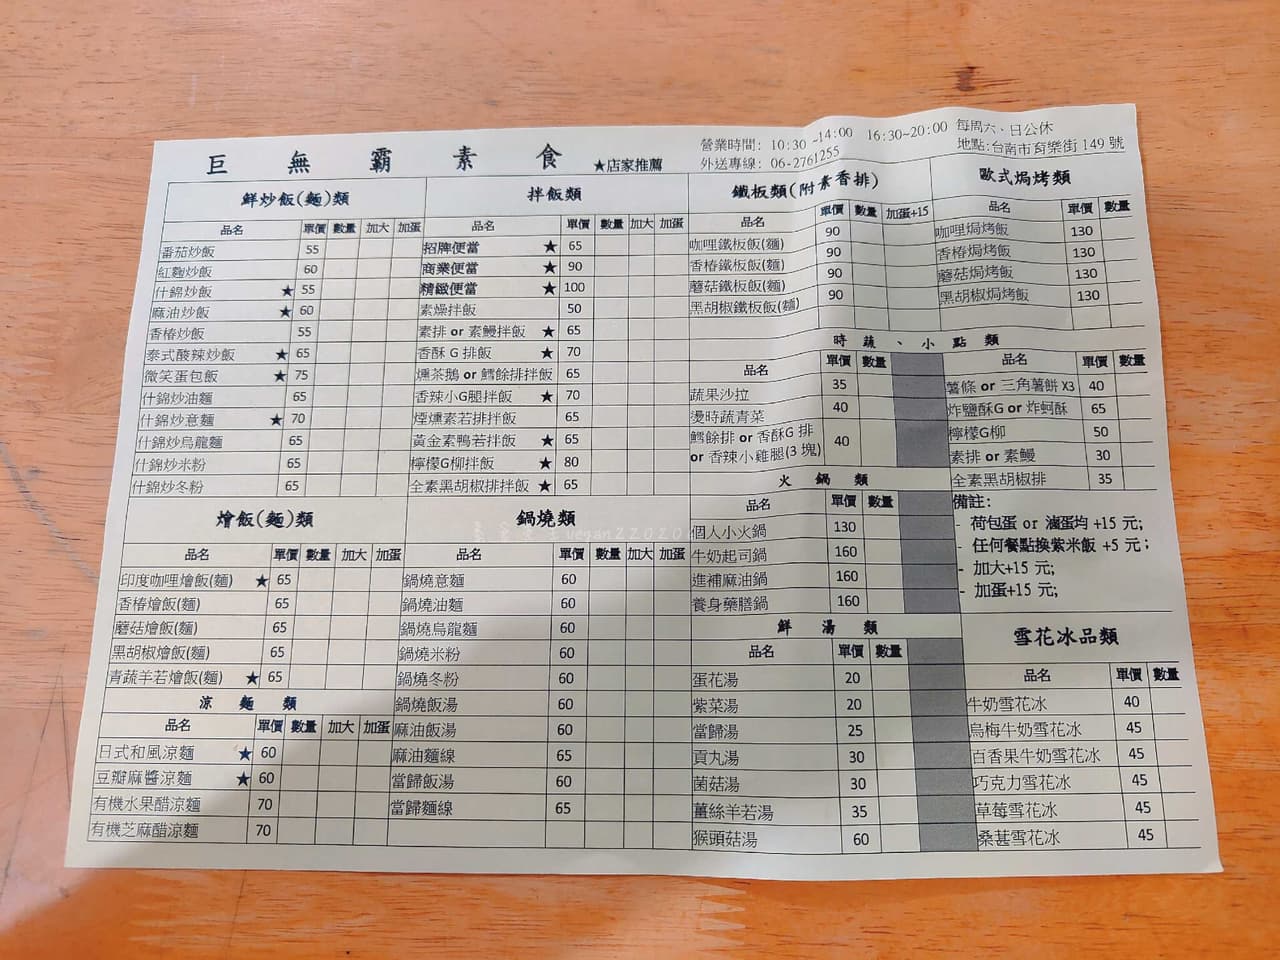 巨無霸素食 ★店家推薦
營業時間: 10:30 ~14:00 16:30~20:00 每周六、日公休
外送專線: 06-2761255 地點:台南市育樂街149號
鮮炒飯(麵)類
品名 單價 數量 加大 加蛋
番茄炒飯 55
紅麴炒飯 60
什錦炒飯 ★ 55
麻油炒飯 ★ 60
香椿炒飯 55
泰式酸辣炒飯 ★ 65
微笑蛋包飯 ★ 75
什錦炒油麵 65
什錦炒意麵 ★ 70
什錦炒烏龍麵 65
什錦炒米粉 65
什錦炒冬粉 65
拌飯類
品名 單價 數量 加大 加蛋
招牌便當 ★ 65
商業便當 ★ 90
精緻便當 ★ 100
素燥拌飯 50
素排 or 素鰻拌飯 ★ 65
香酥 G 排飯 ★ 70
燻茶鵝 or 鱈餘排拌飯 65
香辣小G腿拌飯 ★ 70
煙燻素若排拌飯 65
黃金素鴨若拌飯 ★ 65
檸檬G柳拌飯 ★ 80
全素黑胡椒排拌飯 ★ 65
鐵板類(附素香排)
品名 單價 數量 加蛋+15
咖哩鐵板飯(麵) 90
香椿鐵板飯(麵) 90
蘑菇鐵板飯(麵) 90
黑胡椒鐵板飯(麵) 90
歐式焗烤類
品名 單價 數量
咖哩焗烤飯 130
香椿焗烤飯 130
蘑菇焗烤飯 130
黑胡椒焗烤飯 130
時蔬、小點類
品名 單價 數量
蔬果沙拉 35
燙時蔬青菜 40
鱈餘排 or 香酥G 排
or 香辣小雞腿(3 塊) 40
品名 單價 數量
薯條 or 三角薯餅 X3 40
炸鹽酥G or 炸蚵酥 65
檸檬G柳 50
素排 or 素鰻 30
全素黑胡椒排 35
燴飯(麵)類
品名 單價 數量 加大 加蛋
印度咖哩燴飯(麵) ★ 65
香椿燴飯(麵) 65
蘑菇燴飯(麵) 65
黑胡椒燴飯(麵) 65
青蔬羊若燴飯(麵) ★ 65
涼麵類
品名 單價 數量 加大 加蛋
日式和風涼麵 ★ 60
豆瓣麻醬涼麵 ★ 60
有機水果醋涼麵 70
有機芝麻醋涼麵 70
鍋燒類
品名 單價 數量 加大 加蛋
鍋燒意麵 60
鍋燒油麵 60
鍋燒烏龍麵 60
鍋燒米粉 60
鍋燒冬粉 60
鍋燒飯湯 60
麻油飯湯 60
麻油麵線 65
當歸飯湯 60
當歸麵線 65
火鍋類
品名 單價 數量
個人小火鍋 130
牛奶起司鍋 160
進補麻油鍋 160
養身藥膳鍋 160
鮮湯類
品名 單價 數量
蛋花湯 20
紫菜湯 20
當歸湯 25
貢丸湯 30
菌菇湯 30
薑絲羊若湯 35
猴頭菇湯 60
備註:
- 荷包蛋 or 滷蛋均 +15 元;
- 任何餐點換紫米飯 +5 元;
- 加大+15 元;
- 加蛋+15 元;
雪花冰品類
品名 單價 數量
牛奶雪花冰 40
烏梅牛奶雪花冰 45
百香果牛奶雪花冰 45
巧克力雪花冰 45
草莓雪花冰 45
桑葚雪花冰 45